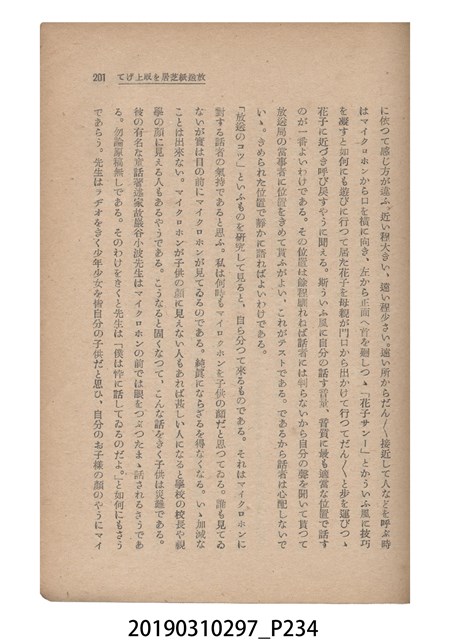 放送紙芝居を取上げて 201
に依つて感じ方が違ふ。近い程大きい、遠い程少さい。遠い所からだん〳〵接近して人などを呼ぶ時
はマイクロホンから口を横に向き、左から正面へ首を廻しつゝ「花子サンー」とかういふ風に技巧
を凝すと如何にも遊びに行つて居た花子を母親が門口から出かけて行つてだん〳〵と歩を運びつゝ
花子に近づき呼び戻すやうに聞える。斯ういふ風に自分の話す音量、音質に最も適當な位置で話す
のが一番よいわけである。その位置は餘程馴れねば話者には判らないから自分の聲を聞いて貰つて
放送局の當事者に位置をきめて貰ふがよい、これがテストである。であるから話者は心配しないで
いゝ。きめられた位置で靜かに語ればよいわけである。
「放送のコツ」といふものを研究して見ると、自ら分つて來るものである。それはマイクロホンに
對する話者の氣持であると思ふ。私は何時もマイクロホンを子供の顔だと思つてゐる。誰も見てゐ
ないが實は目の前にマイクロホンが見てゐるのである。純眞にならざるを得なくなる。いゝ加減な
ことは出來ない。マイクロホンが子供の顔に見えない人もあれば甚しい人になると學校の校長や視
學の顔に見える人もあるやうである。こうなると固くなつて、こんな話をきく子供は災難である。
彼の有名な童話著述家故巖谷小波先生はマイクロホンの前では眼をつぶつたまゝ話されるさうであ
る。勿論原稿無しである。そのわけをきくと先生は「僕は忰に話してゐるのだよ。」と如何にもさう
であらう。先生はラヂオをきく少年少女を皆自分の子供だと思ひ、自分のお子樣の顔のやうにマイ
20190310297_P234